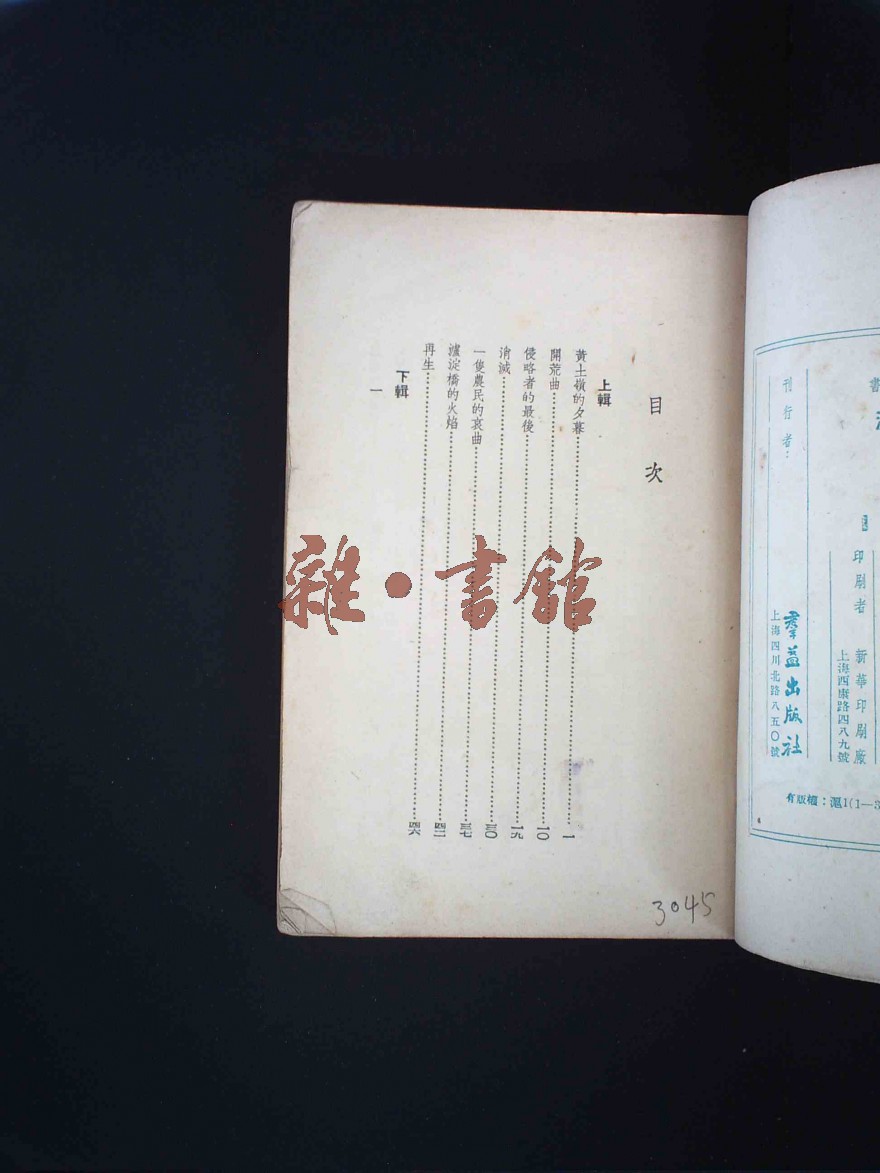 目次
上輯
黃土嶺的夕暮 一
開荒曲 一〇
侵略者的最後 一九
消滅 三〇
一隻農民的哀曲 三七
瀘淀橋的火焰 四二
再生 四六
下輯
一
3045
雜·書館
書
印刷者 新華印刷廠
上海西康路四八九號
刊行者：
羣益出版社
上海四川北路八五〇號
有版權：滬1(1—3